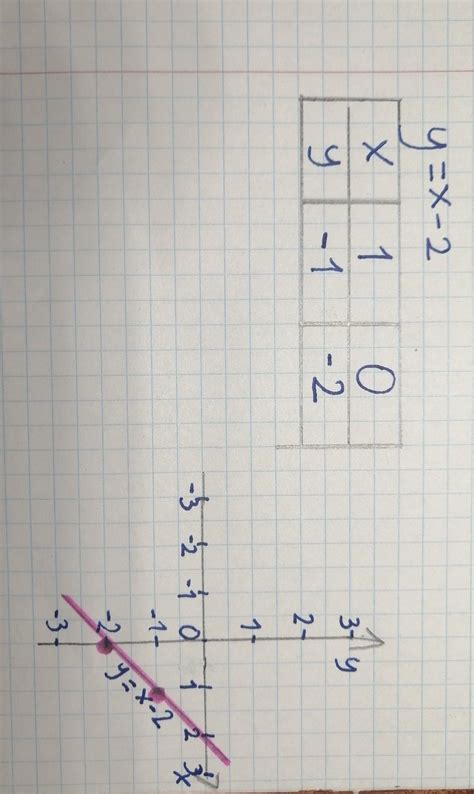 y=x-2
x 1 0
y -1 -2
3 y
2
1
-3 -2 -1 0 1 2 3 x
-1
-2
-3
y=x-2